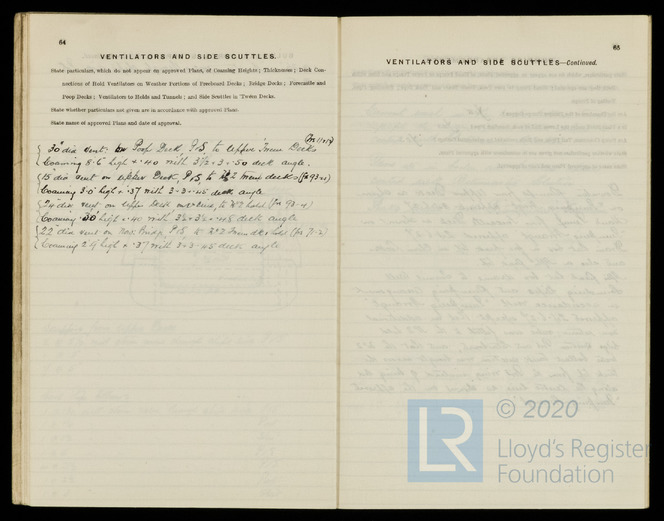 64
VENTILATORS AND SIDE SCUTTLES.
State particulars, which do not appear on approved Plans, of Coaming Heights; Thicknesses; Deck Con-
nections of Hold Ventilators on Weather Portions of Freeboard Decks; Bridge Decks; Forecastle and
Poop Decks; Ventilators to Holds and Tunnels; and Side Scuttles in 'Tween Decks.
State whether particulars not given are in accordance with approved Plans.
State name of approved Plans and date of approval.
30" dia vent Poop Deck P&S, to Upper Tween Decks
Coaming 8'-6" high × .40 with 3½ × 3 × .50 deck angle.
15" dia vent on Upper Deck, P&S, to Nº2 Tween decks
Coaming 3'-0" high × .37 with 3 - 3 × .45 deck angle
24" dia vent on Upper Deck to Nº2 hold
Coaming 30" high × .40 with 3½ × 3½ × .48 deck angle
22" dia vent on Nav. Bridge P&S to Nº2 Tween dk & hold
Coaming high × .37 with 3 × 3 × .45 deck angle
65
VENTILATORS AND SIDE SCUTTLES—Continued.
LR
© 2020
Lloyd's Register
Foundation